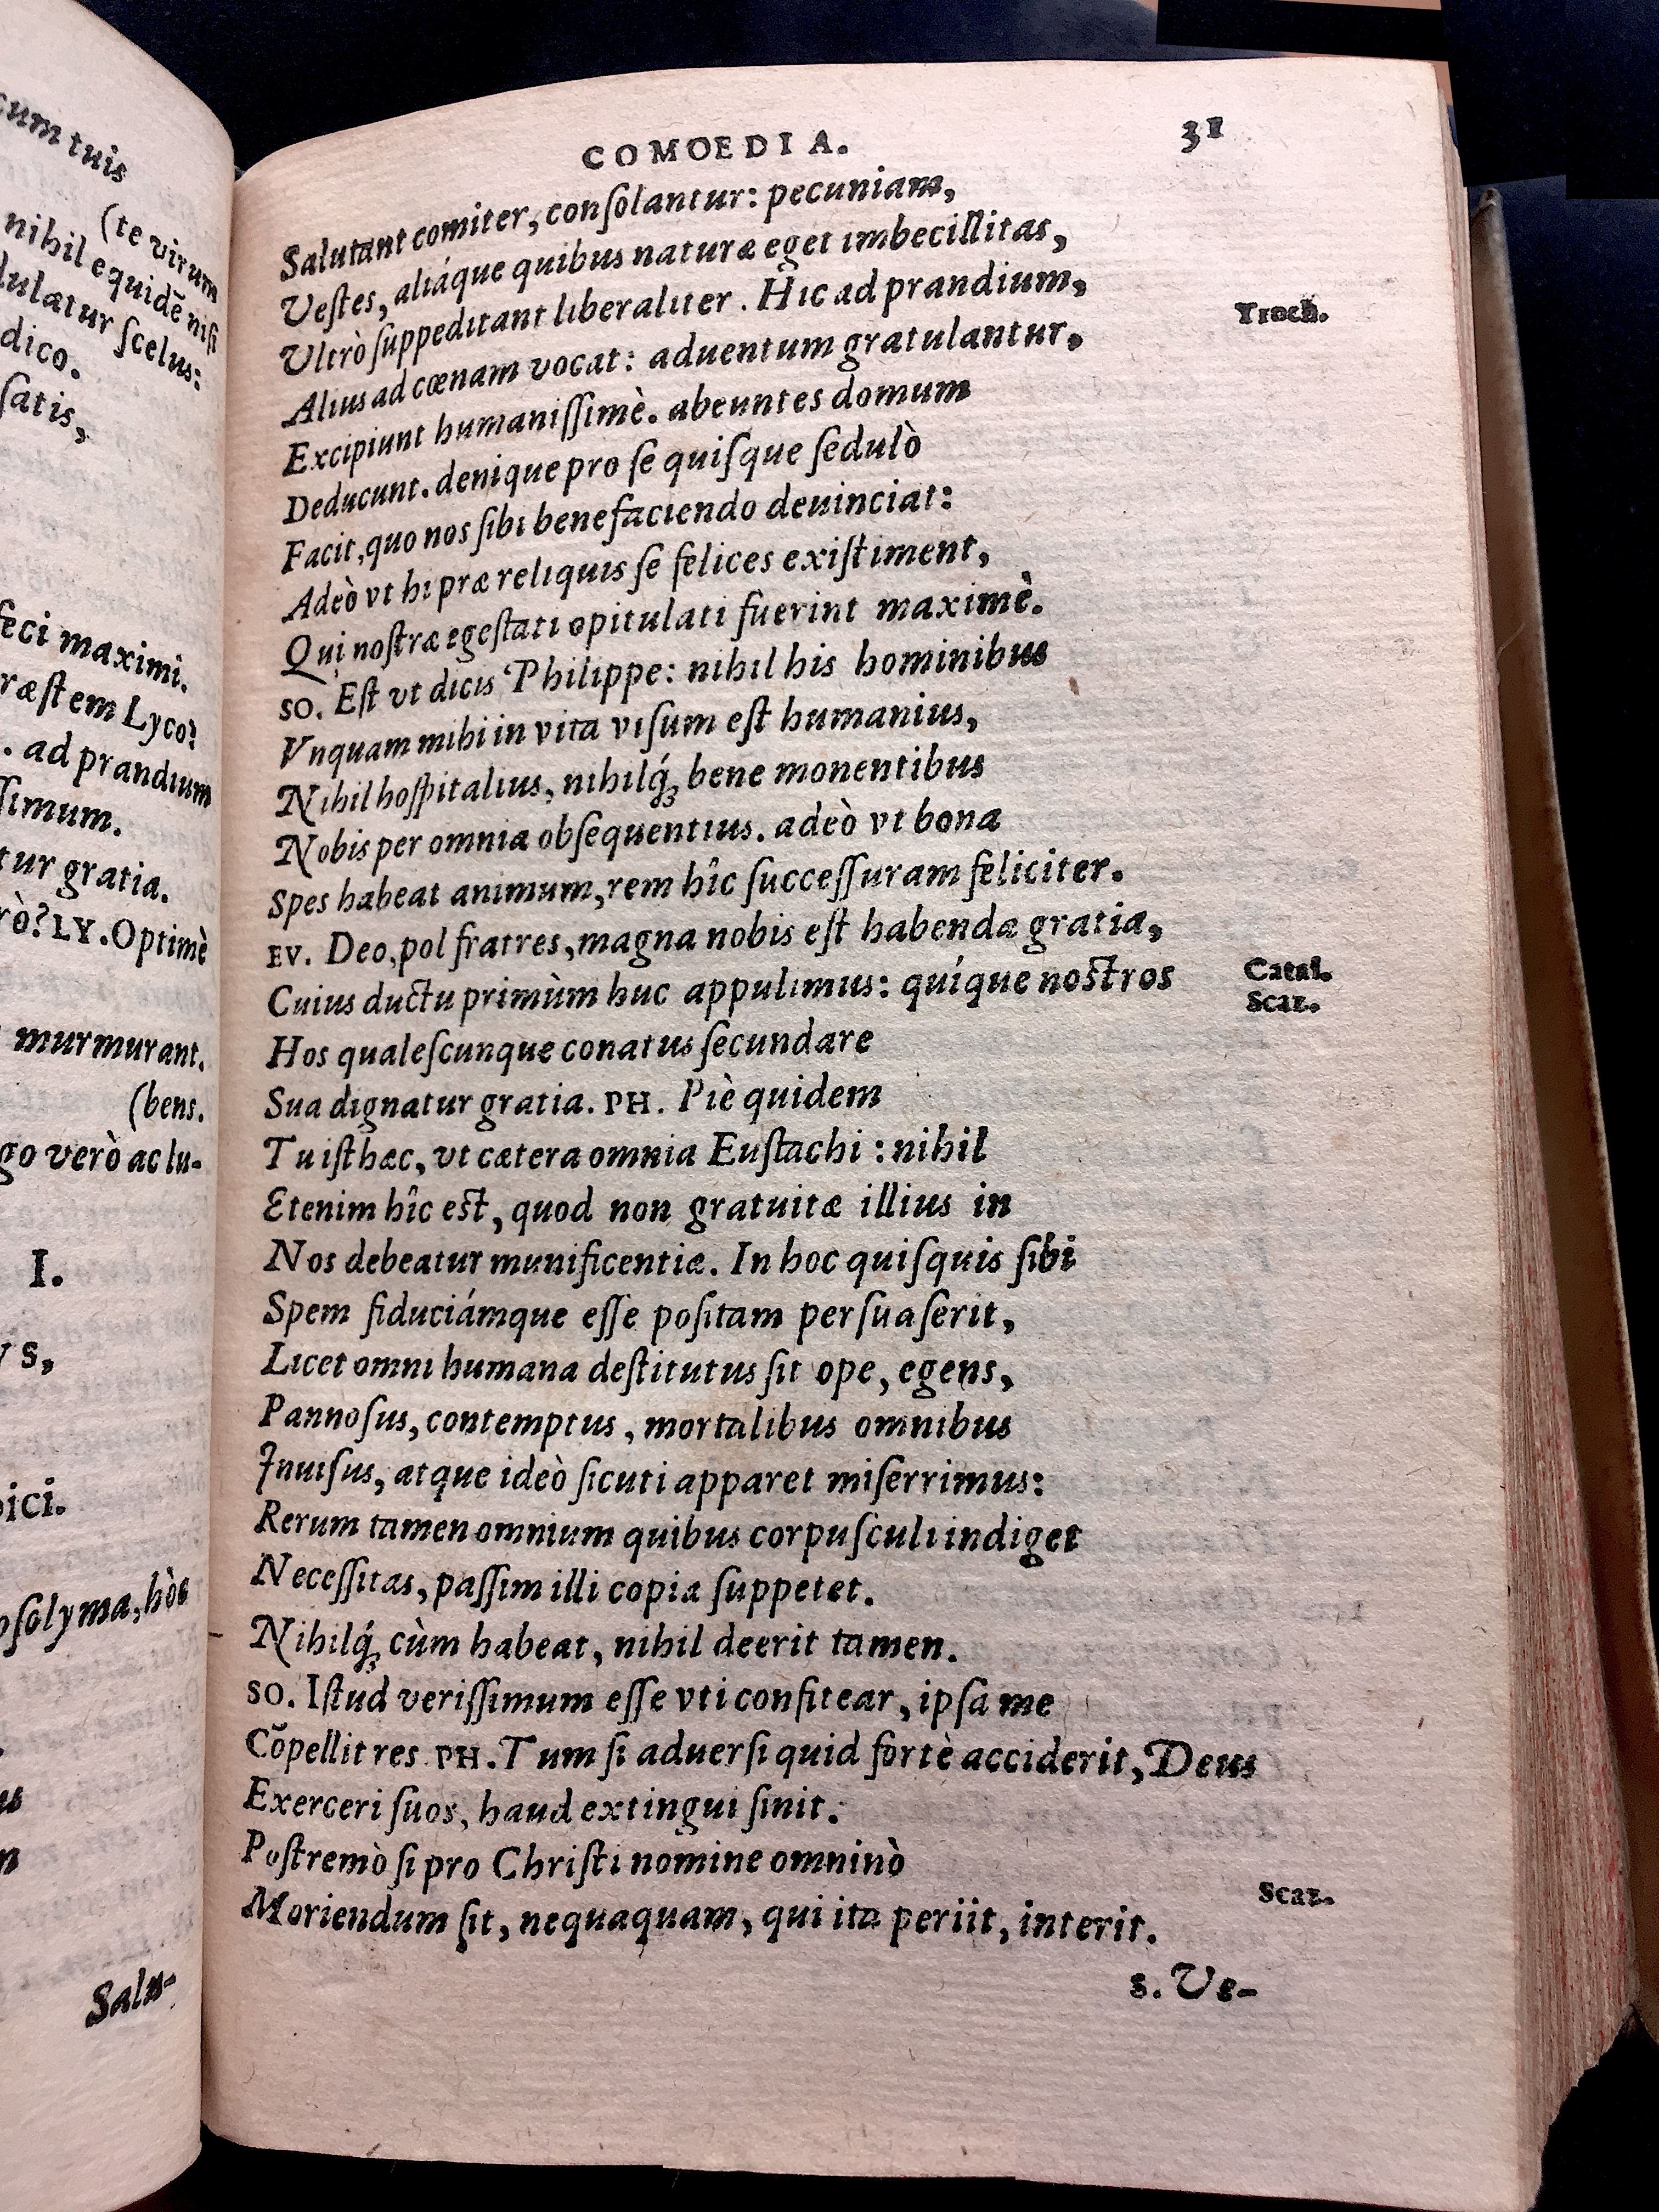 cum tuis
(te virum
nihil equidē nisi
dulatur scelus:
dico.
satis,
feci maximi.
ræstem Lyco?
. ad prandium
simum.
tur gratia.
rò? LY. Optimè
murmurant.
(bens.
go verò ac lu-
I.
VS,
pici.
osolyma, hòc
Salu-
COMOEDIA. 31
Salutant comiter, consolantur: pecuniam,
Vestes, aliáque quibus naturæ eget imbecillitas,
Ultrò suppeditant liberaliter. Hic ad prandium, Troch.
Alius ad cœnam vocat: aduentum gratulantur,
Excipiunt humanissimè. abeuntes domum
Deducunt. denique pro se quisque sedulò
Facit, quo nos sibi benefaciendo deuinciat:
Adeò vt hi præ reliquis se felices existiment,
Qui nostræ egestati opitulati fuerint maximè.
SO. Est vt dicis Philippe: nihil his hominibus
Vnquam mihi in vita visum est humanius,
Nihil hospitalius, nihilq́; bene monentibus
Nobis per omnia obsequentius. adeò vt bona
Spes habeat animum, rem hîc successuram feliciter.
EV. Deo, pol fratres, magna nobis est habenda gratia,
Cuius ductu primùm huc appulimus: quíque nostros Catal.
Scaz.
Hos qualescunque conatus secundare
Sua dignatur gratia. PH. Piè quidem
Tu isthæc, vt cætera omnia Eustachi: nihil
Etenim hîc est, quod non gratuitæ illius in
Nos debeatur munificentiæ. In hoc quisquis sibi
Spem fiduciámque esse positam persuaserit,
Licet omni humana destitutus sit ope, egens,
Pannosus, contemptus, mortalibus omnibus
Inuisus, atque ideò sicuti apparet miserrimus:
Rerum tamen omnium quibus corpusculi indiget
Necessitas, passim illi copia suppetet.
Nihilq́; cùm habeat, nihil deerit tamen.
SO. Istud verissimum esse vti confitear, ipsa me
Cōpellit res PH. Tum si aduersi quid fortè acciderit, Deus
Exerceri suos, haud extingui sinit.
Postremò si pro Christi nomine omninò
Moriendum sit, nequaquam, qui ita periit, interit. Scaz.
S. Us-